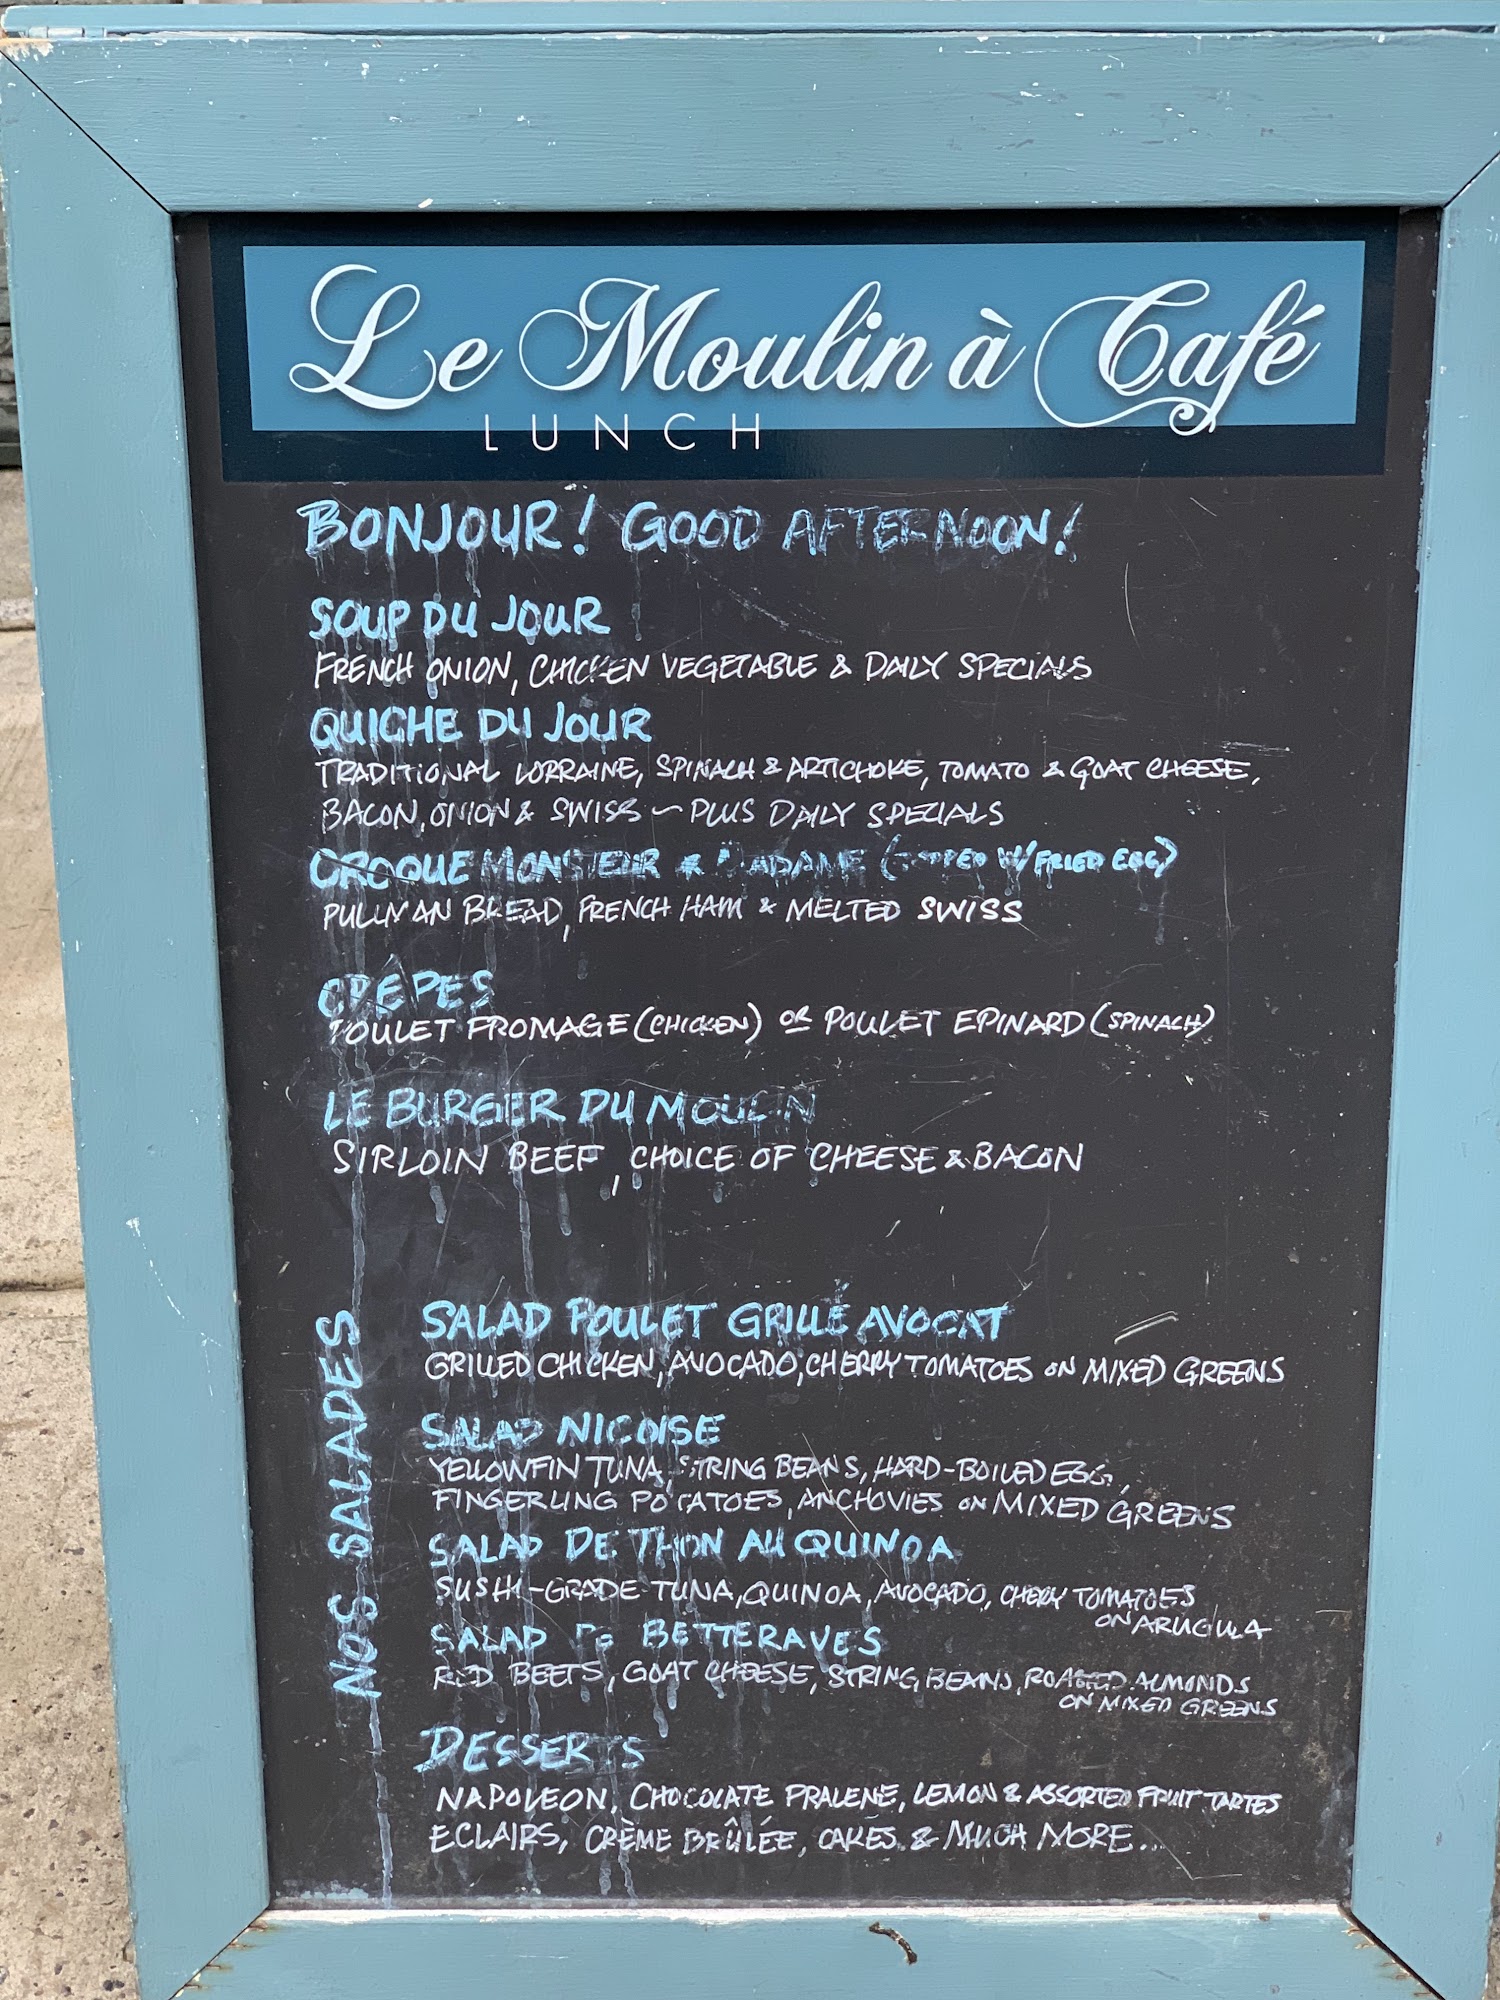 Le Moulin à Café
LUNCH
BONJOUR! GOOD AFTERNOON!
SOUP DU JOUR
FRENCH ONION, CHICKEN VEGETABLE & DAILY SPECIALS
QUICHE DU JOUR
TRADITIONAL LORRAINE, SPINACH & ARTICHOKE, TOMATO & GOAT CHEESE,
BACON, ONION & SWISS ~ PLUS DAILY SPECIALS
CROQUE MONSIEUR & MADAME (TOPPED W/ FRIED EGG)
PULLMAN BREAD, FRENCH HAM & MELTED SWISS
CRÊPES
POULET FROMAGE (CHICKEN) OR POULET EPINARD (SPINACH)
LE BURGER DU MOULIN
SIRLOIN BEEF, CHOICE OF CHEESE & BACON
NOS SALADES
SALAD POULET GRILLÉ AVOCAT
GRILLED CHICKEN, AVOCADO, CHERRY TOMATOES ON MIXED GREENS
SALAD NICOISE
YELLOWFIN TUNA, STRING BEANS, HARD-BOILED EGG,
FINGERLING POTATOES, ANCHOVIES ON MIXED GREENS
SALAD DE THON AU QUINOA
SUSHI-GRADE TUNA, QUINOA, AVOCADO, CHERRY TOMATOES
ON ARUGULA
SALAD DE BETTERAVES
RED BEETS, GOAT CHEESE, STRING BEANS, ROASTED ALMONDS
ON MIXED GREENS
DESSERTS
NAPOLEON, CHOCOLATE PRALENE, LEMON & ASSORTED FRUIT TARTES
ECLAIRS, CRÈME BRÛLÉE, CAKES & MUCH MORE...